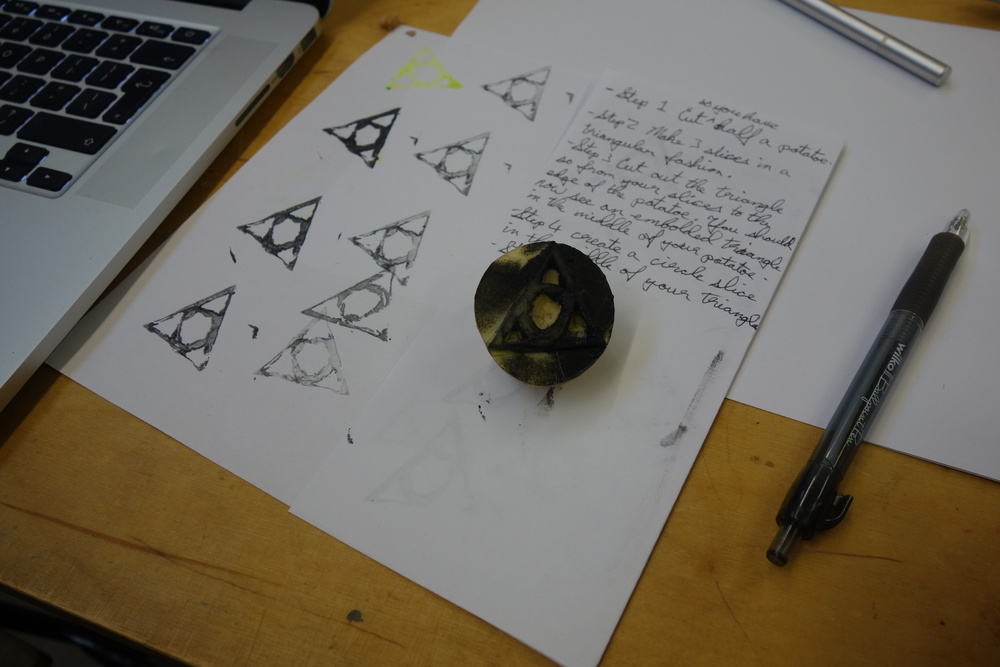 so you have
- Step 1 Cut half a potatoe.
- Step 2 Make 3 slices in a
triangular fashion.
- Step 3 Cut out the triangle
so from your slices to the
edge of the potatoe. You should
now see an embolled triangle
in the middle of your potatoe.
- Step 4 create a circle slice
in the middle of your triangle
wilko Ballpoint Pen